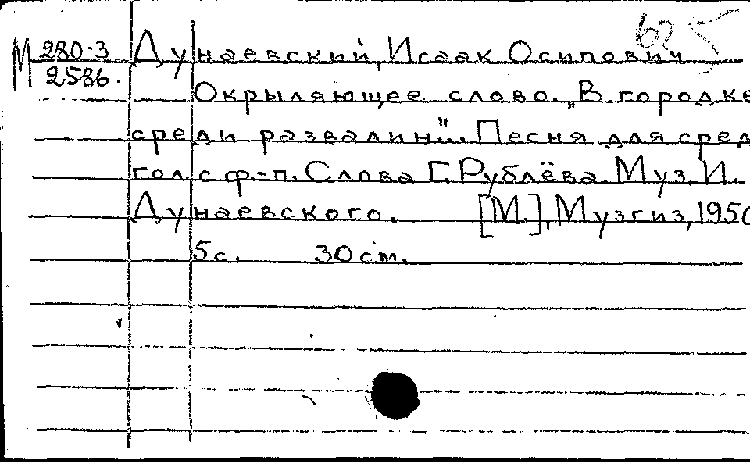 М 280-3 Дунаевский, Исаак Осипович
2586.
Окрыляющее слово. „В городке
среди развалин...". Песня для сред.
гол. с ф.-п. Слова Г. Рублёва Муз. И.
Дунаевского. [М.], Музгиз, 1950
5 с. 30 см.